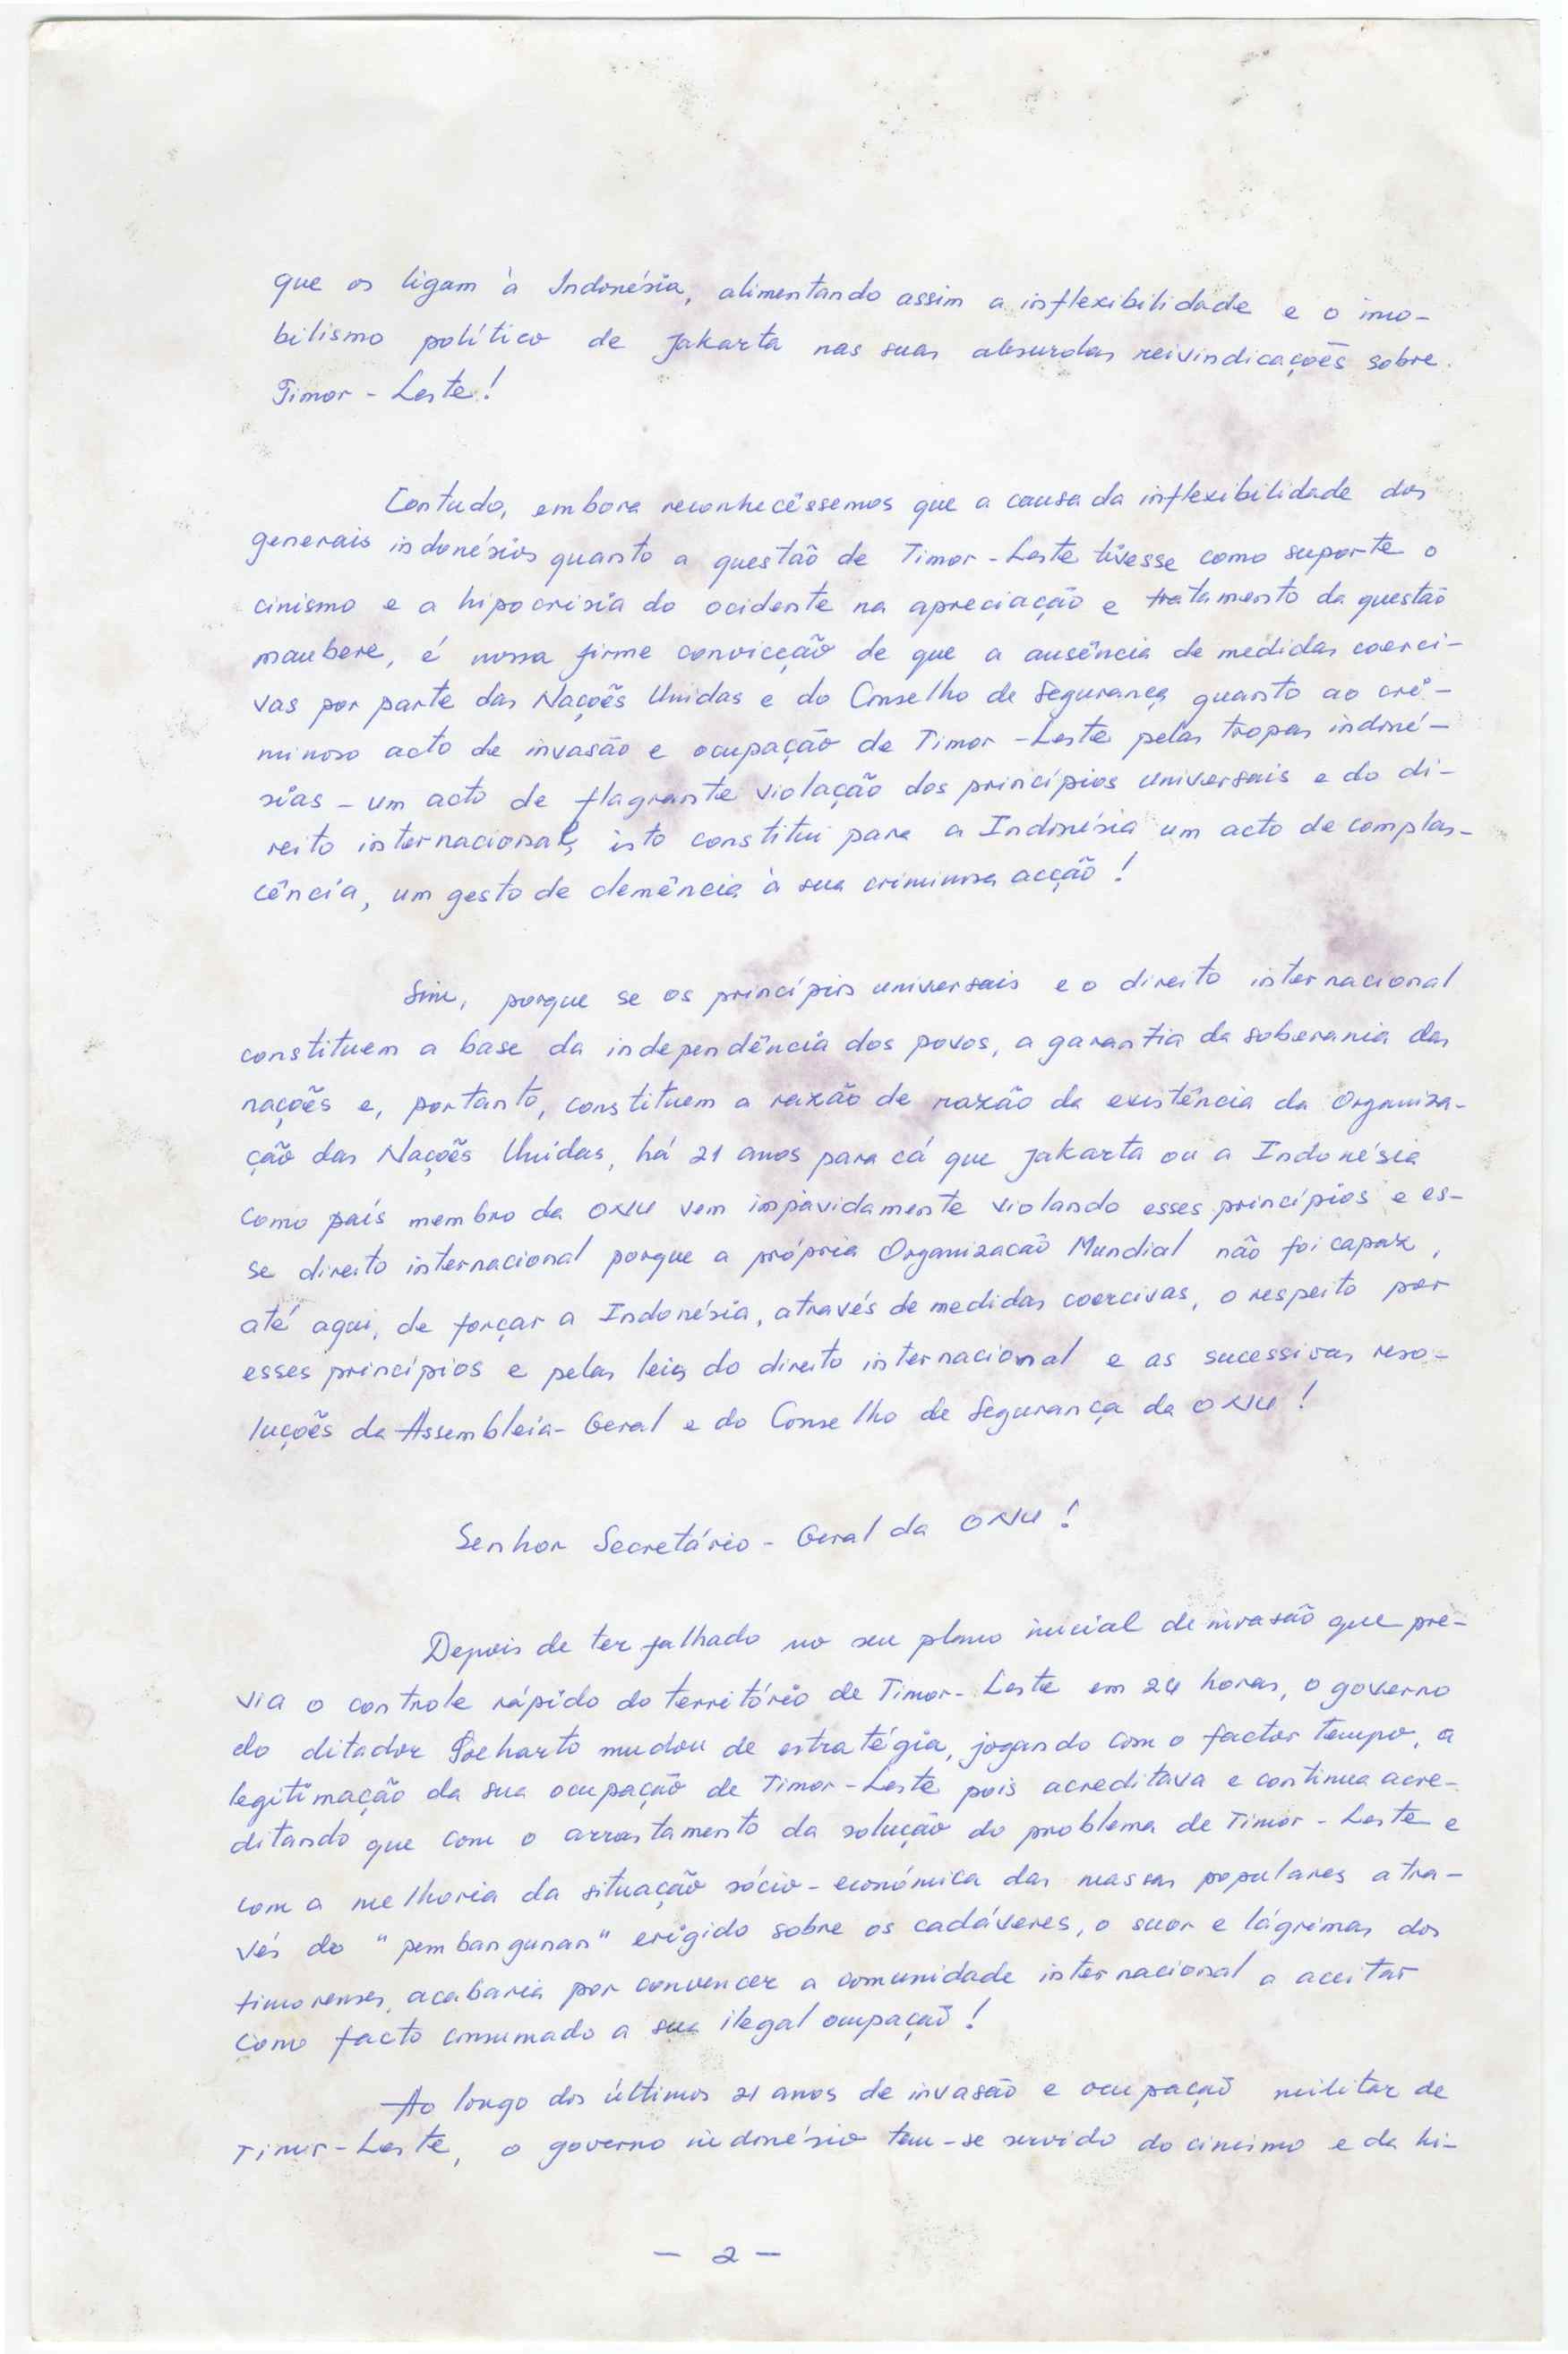 que os ligam à Indonésia, alimentando assim a inflexibilidade e o imo-
bilismo político de Jakarta nas suas absurdas reivindicações sobre
Timor-Leste!
Contudo, embora reconhecêssemos que a causa da inflexibilidade dos
generais indonésios quanto a questão de Timor-Leste tivesse como suporte o
cinismo e a hipocrisia do ocidente na apreciação e tratamento da questão
maubere, é nossa firme convicção de que a ausência de medidas coerci-
vas por parte das Nações Unidas e do Conselho de Segurança quanto ao cri-
minoso acto de invasão e ocupação de Timor-Leste pelas tropas indoné-
sias - um acto de flagrante violação dos princípios universais e do di-
reito internacional, isto constitui para a Indonésia um acto de complas-
cência, um gesto de demência à sua criminosa acção!
Sim, porque se os princípios universais e o direito internacional
constituem a base da independência dos povos, a garantia da soberania das
nações e, portanto, constituem a razão de razão da existência da Organiza-
ção das Nações Unidas, há 21 anos para cá que Jakarta ou a Indonésia
como país membro da ONU vem impàvidamente violando esses princípios e es-
se direito internacional porque a própria Organizacão Mundial não foi capaz,
até aqui, de forçar a Indonésia, através de medidas coercivas, o respeito por
esses princípios e pelas leis do direito internacional e as sucessivas reso-
luções da Assembleia-Geral e do Conselho de Segurança da ONU!
Senhor Secretário-Geral da ONU!
Depois de ter falhado no seu plano inicial de invasão que pre-
via o controle rápido do território de Timor-Leste em 24 horas, o governo
do ditador Soeharto mudou de estratégia, jogando com o factor tempo, a
legitimação da sua ocupação de Timor-Leste pois acreditava e continua acre-
ditando que com o arrastamento da solução do problema de Timor-Leste e
com a melhoria da situação sócio-económica das massas populares atra-
vés do "pembangunan" erigido sobre os cadáveres, o suor e lágrimas dos
timorenses, acabaria por convencer a comunidade internacional a aceitar
como facto consumado a sua ilegal ocupação!
Ao longo dos últimos 21 anos de invasão e ocupação militar de
Timor-Leste, o governo indonésio tem-se servido do cinismo e da hi-
- 2 -